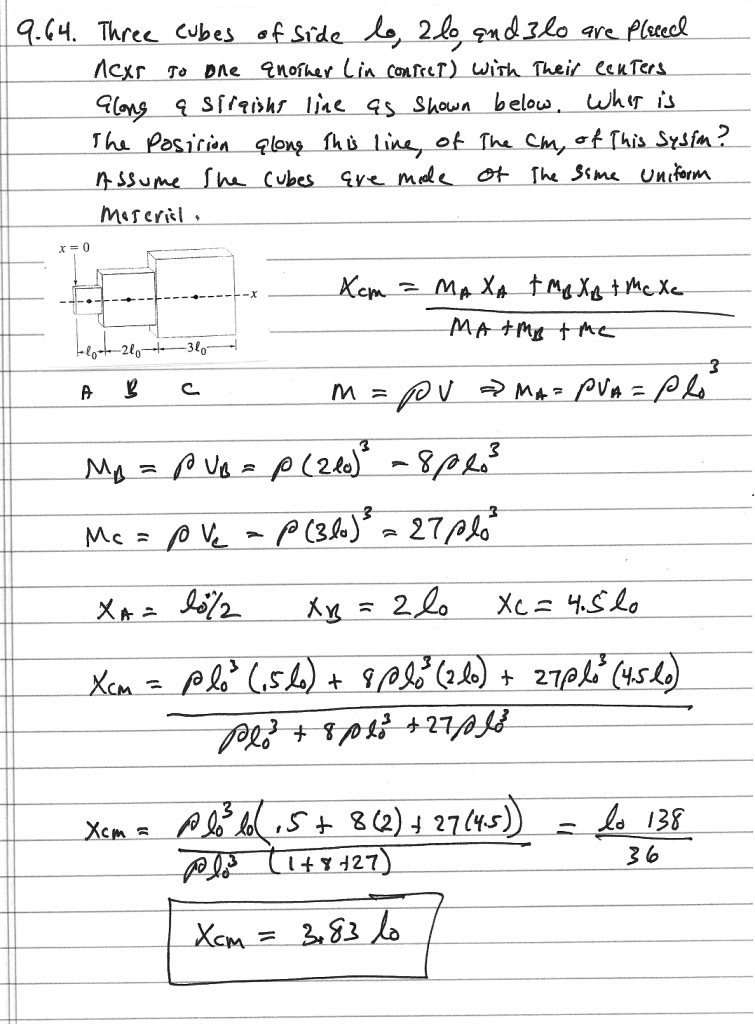 9.64. Three cubes of side l₀, 2l₀, and 3l₀ are placed
next to one another (in contact) with their centers
along a straight line as shown below. What is
the position along this line, of the CM, of this system?
Assume the cubes are made of the same uniform
material.
x = 0
x
l₀ 2l₀ 3l₀
A B C
Xcm = (MA XA + MB XB + MC XC) / (MA + MB + MC)
M = ρV ⇒ MA = ρVA = ρl₀³
MB = ρVB = ρ(2l₀)³ = 8ρl₀³
MC = ρVC = ρ(3l₀)³ = 27ρl₀³
XA = l₀/2 XB = 2l₀ XC = 4.5l₀
Xcm = (ρl₀³(.5l₀) + 8ρl₀³(2l₀) + 27ρl₀³(4.5l₀)) / (ρl₀³ + 8ρl₀³ + 27ρl₀³)
Xcm = ρl₀³ l₀(.5 + 8(2) + 27(4.5)) / ρl₀³ (1+8+27) = l₀ 138 / 36
Xcm = 3.83 l₀